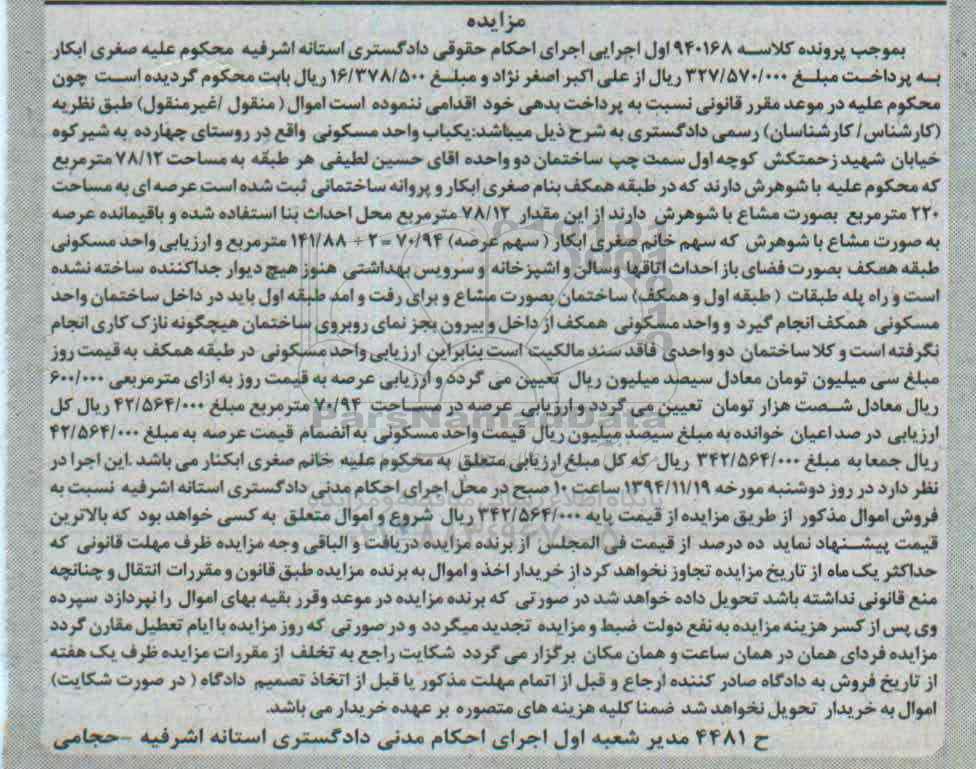 مزایده
بموجب پرونده کلاسه ۹۴۰۱۶۸ اول اجرایی اجرای احکام حقوقی دادگستری استانه اشرفیه محکوم علیه صغری ابکار
به پرداخت مبلغ ۳۲۷/۵۷۰/۰۰۰ ریال از علی اکبر اصغر نژاد و مبلغ ۱۶/۳۷۸/۵۰۰ ریال بابت محکوم گردیده است چون
محکوم علیه در موعد مقرر قانونی نسبت به پرداخت بدهی خود اقدامی ننموده است اموال ( منقول /غیرمنقول) طبق نظریه
(کارشناس/ کارشناسان) رسمی دادگستری به شرح ذیل میباشد:یکباب واحد مسکونی واقع در روستای چهارده به شیرکوه
خیابان شهید زحمتکش کوچه اول سمت چپ ساختمان دو واحده اقای حسین لطیفی هر طبقه به مساحت ۷۸/۱۲ مترمربع
که محکوم علیه با شوهرش دارند که در طبقه همکف بنام صغری ابکار و پروانه ساختمانی ثبت شده است عرصه ای به مساحت
۲۲۰ مترمربع بصورت مشاع با شوهرش دارند از این مقدار ۷۸/۱۲ مترمربع محل احداث بنا استفاده شده و باقیمانده عرصه
به صورت مشاع با شوهرش که سهم خانم صغری ابکار ( سهم عرصه) ۷۰/۹۴ = ۲ ÷ ۱۴۱/۸۸ مترمربع و ارزیابی واحد مسکونی
طبقه همکف بصورت فضای باز احداث اتاقها وسالن و اشپزخانه و سرویس بهداشتی هنوز هیچ دیوار جداکننده ساخته نشده
است و راه پله طبقات ( طبقه اول و همکف) ساختمان بصورت مشاع و برای رفت و امد طبقه اول باید در داخل ساختمان واحد
مسکونی همکف انجام گیرد و واحد مسکونی همکف از داخل و بیرون بجز نمای روبروی ساختمان هیچگونه نازک کاری انجام
نگرفته است و کلا ساختمان دو واحدی فاقد سند مالکیت است بنابراین ارزیابی واحد مسکونی در طبقه همکف به قیمت روز
مبلغ سی میلیون تومان معادل سیصد میلیون ریال تعیین می گردد و ارزیابی عرصه به قیمت روز به ازای مترمربعی ۶۰۰/۰۰۰
ریال معادل شصت هزار تومان تعیین می گردد و ارزیابی عرصه در مساحت ۷۰/۹۴ مترمربع مبلغ ۴۲/۵۶۴/۰۰۰ ریال کل
ارزیابی در صد اعیان خوانده به مبلغ سیصد میلیون ریال قیمت واحد مسکونی به انضمام قیمت عرصه به مبلغ ۴۲/۵۶۴/۰۰۰
ریال جمعا به مبلغ ۳۴۲/۵۶۴/۰۰۰ ریال که کل مبلغ ارزیابی متعلق به محکوم علیه خانم صغری ابکنار می باشد .این اجرا در
نظر دارد در روز دوشنبه مورخه ۱۳۹۴/۱۱/۱۹ ساعت ۱۰ صبح در محل اجرای احکام مدنی دادگستری استانه اشرفیه نسبت به
فروش اموال مذکور از طریق مزایده از قیمت پایه ۳۴۲/۵۶۴/۰۰۰ ریال شروع و اموال متعلق به کسی خواهد بود که بالاترین
قیمت پیشنهاد نماید ده درصد از قیمت فی المجلس از برنده مزایده دریافت و الباقی وجه مزایده ظرف مهلت قانونی که
حداکثر یک ماه از تاریخ مزایده تجاوز نخواهد کرد از خریدار اخذ و اموال به برنده مزایده طبق قانون و مقررات انتقال و چنانچه
منع قانونی نداشته باشد تحویل داده خواهد شد در صورتی که برنده مزایده در موعد وقرر بقیه بهای اموال را نپردازد سپرده
وی پس از کسر هزینه مزایده به نفع دولت ضبط و مزایده تجدید میگردد و در صورتی که روز مزایده با ایام تعطیل مقارن گردد
مزایده فردای همان در همان ساعت و همان مکان برگزار می گردد شکایت راجع به تخلف از مقررات مزایده ظرف یک هفته
از تاریخ فروش به دادگاه صادر کننده ارجاع و قبل از اتمام مهلت مذکور یا قبل از اتخاذ تصمیم دادگاه ( در صورت شکایت)
اموال به خریدار تحویل نخواهد شد ضمنا کلیه هزینه های متصوره بر عهده خریدار می باشد.
ح ۴۴۸۱ مدیر شعبه اول اجرای احکام مدنی دادگستری استانه اشرفیه -حجامی
ParsNamadData